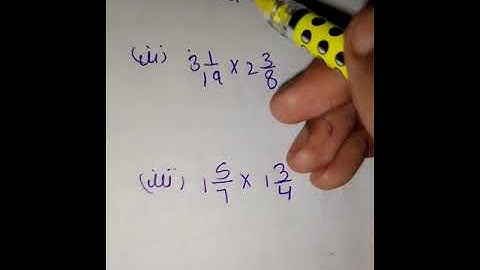 (ii) 3 1/19 × 2 3/8
(iii) 1 5/7 × 1 3/4